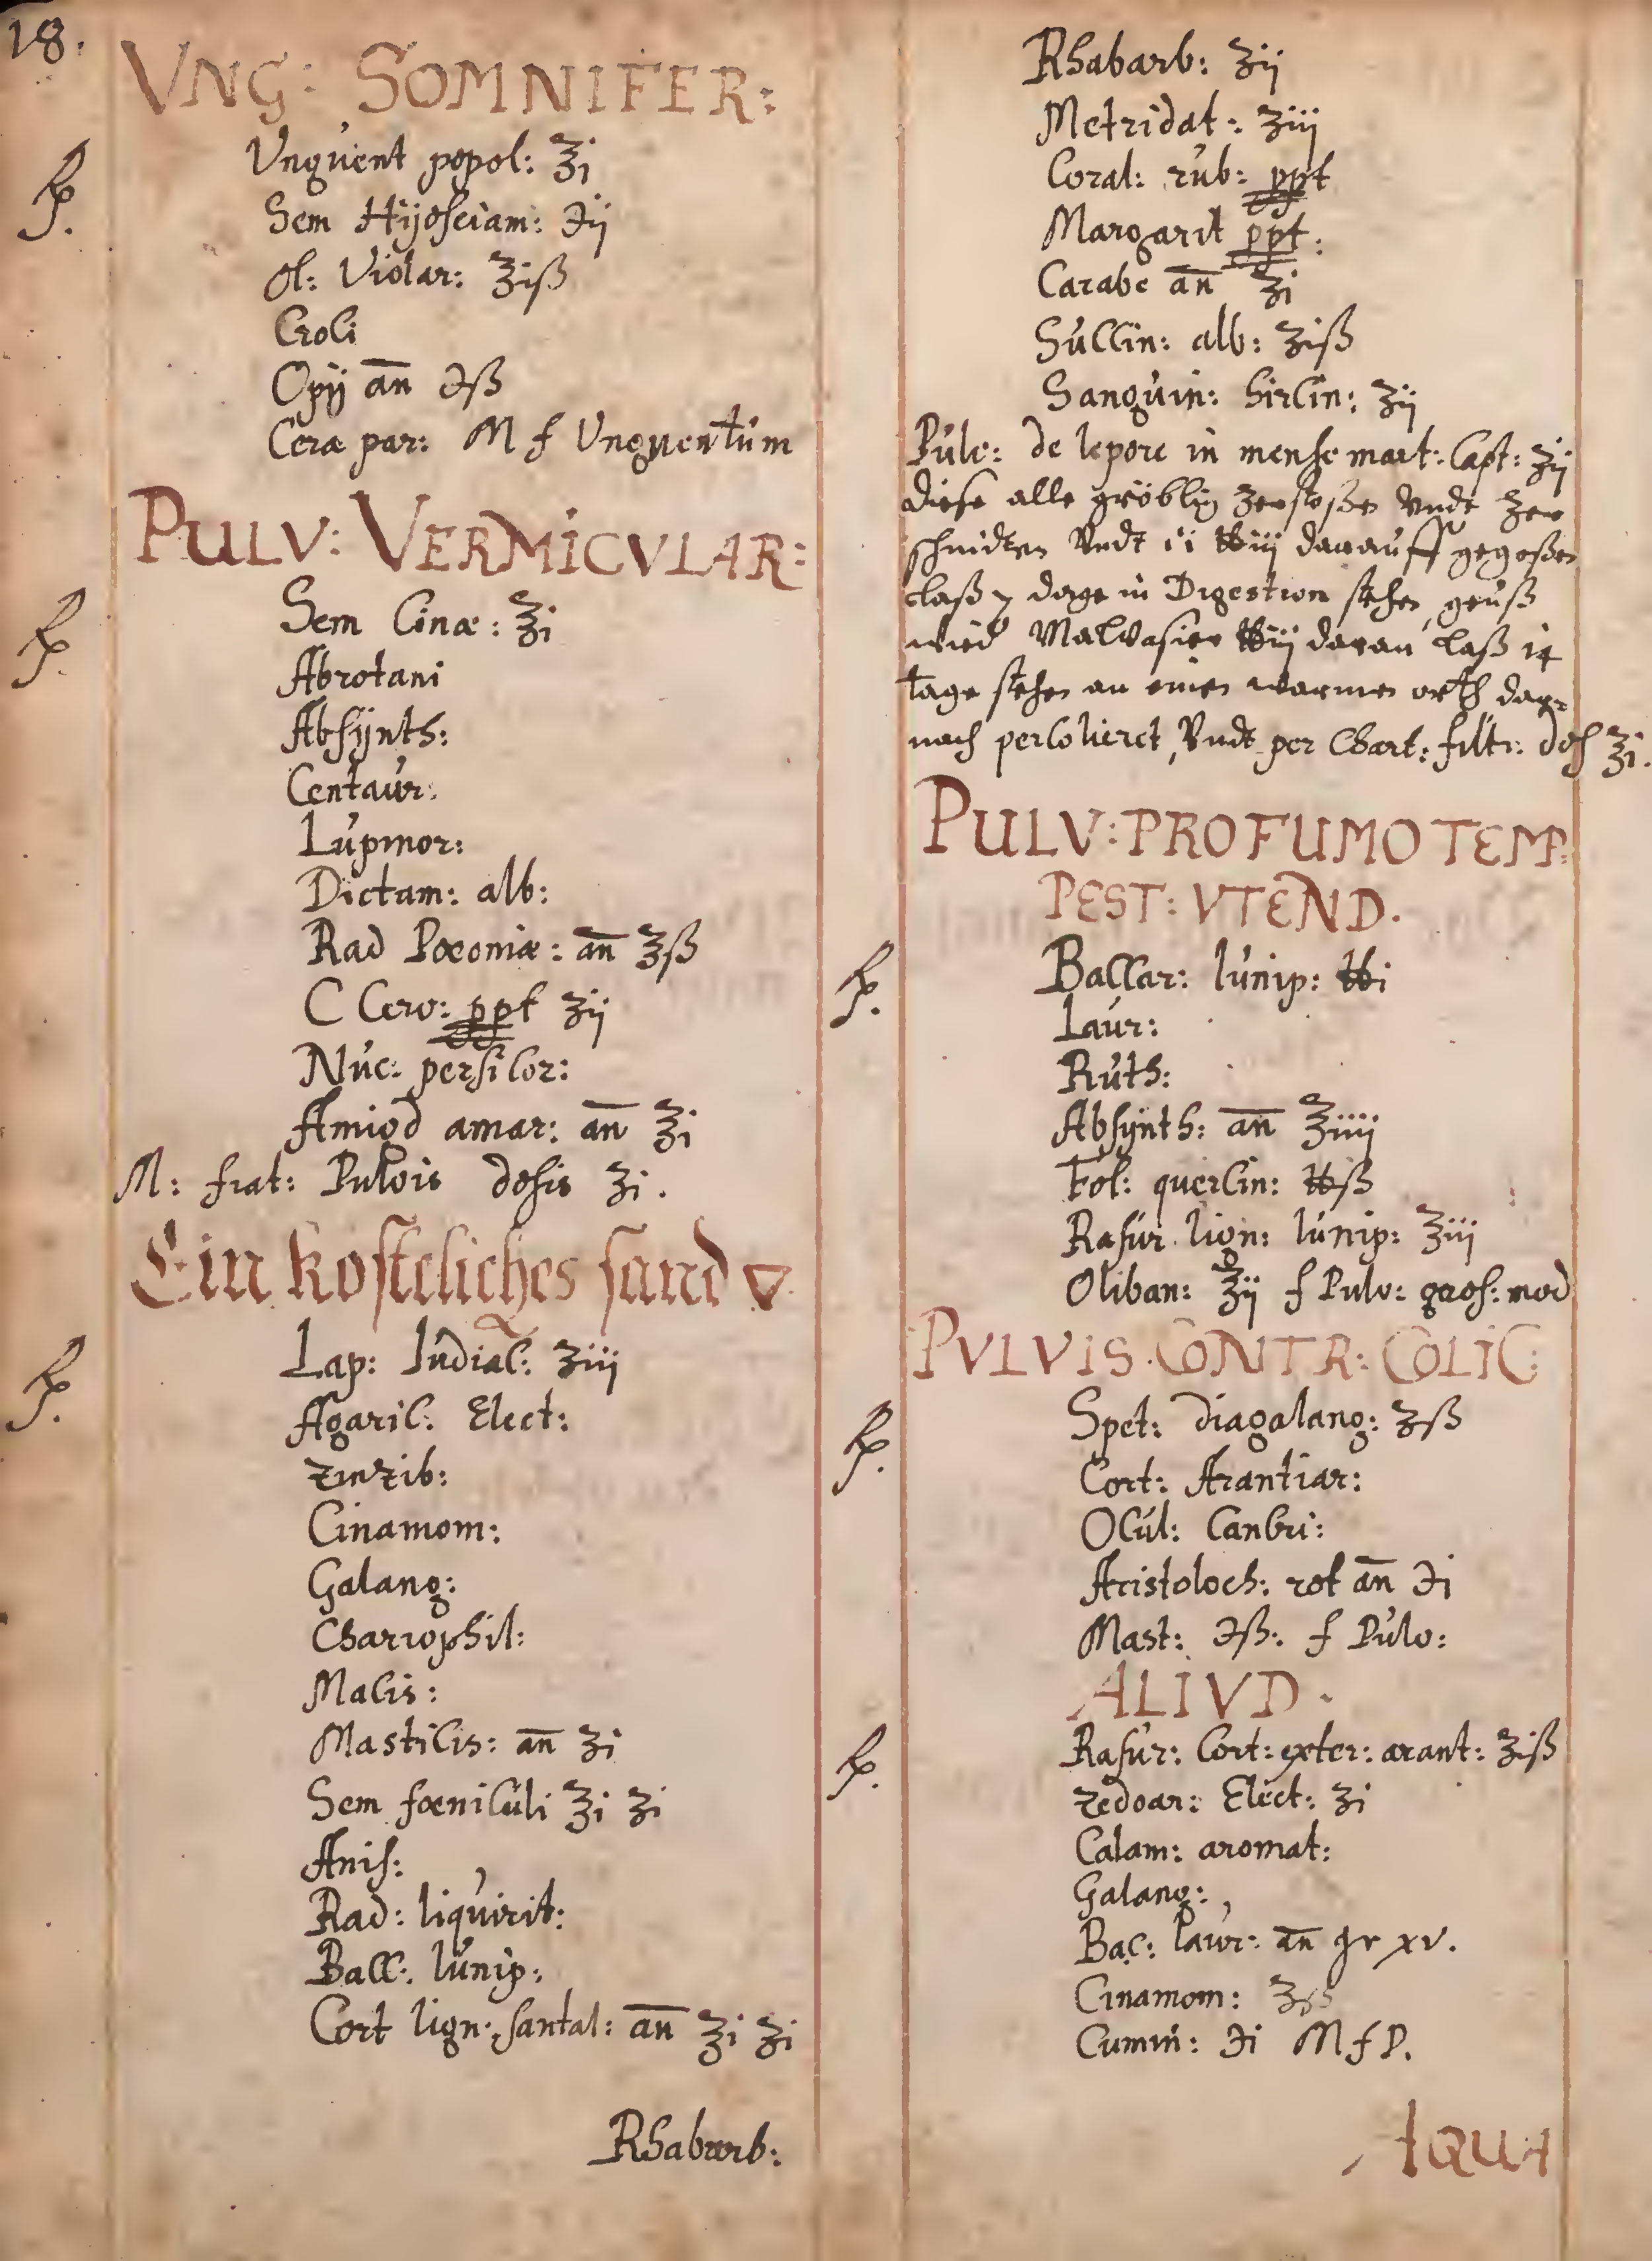 18.
VNG: SOMNIFER:
℞.
Unguent popol: ℥i
Sem Hijosciam: ℈ij
ol: Violar: ℥iß
Croci
Opij an̄ ℈ß
Ceræ par: M f Unguentum
PULV: VERMICVLAR:
℞.
Sem Cinæ: ℥i
Abrotani
Absijnth:
Centaur:
Lupinor:
Dictam: alb:
Rad Pœoniæ: an̄ ʒß
C Cerv: ppt ʒij
Nuc: persicor:
Amigd amar: an̄ ℥i
M: fiat: Pulvis dosis ʒi.
Ein kosteliches sand ▽
℞.
Lap: Iudiac: ʒiij
Agaric: Elect:
zinzib:
Cinamom:
Galang:
Chariophil:
Macis:
Masticis: an̄ ʒi
Sem fœniculi ℥i ʒi
Anis:
Rad: liquirit:
Bacc: Iunip:
Cort lign: santal: an̄ ʒi ʒi
Rhabarb:
Rhabarb: ʒij
Metridat: ʒiij
Coral: rub: ppt
Margarit ppt:
Carabe an̄ ℥i
Succin: alb: ʒiß
Sanguin: hircin: ʒij
Pulv: de lepore in mense mart: Capt: ʒij
diese alle gröblig zerstoßen Vndt zer
schnidten Vndt ℔iij darauff gegoßen
laß 7 dage in Digestion stehen, geuß
wied Malvasier ℔iij daran laß 14
tage stehen an einen warmen orth dar¬
nach percolieret, Vndt per Chart: filtr: dos ℥i.
PULV: PRO FUMO TEMP:
PEST: VTEND.
℞.
Baccar: Iunip: ℔i
Laur:
Ruth:
Absynth: an̄ ℥iiij
Fol: quercin: ℔ß
Rasur lign: Iunip: ℥iij
Oliban: ℥ij f Pulv: gros: mod
PVLVIS CONTR: COLIC:
℞.
Spet: diagalang: ʒß
Cort: Arantiar:
Ocul: Cancri:
Aristoloch: rot an̄ ℈i
Mast: ℈ß: f Pulv:
ALIVD.
℞.
Rasur: Cort: exter: arant: ʒiß
zedoar: Elect: ʒi
Calam: aromat:
Galang:
Bac: laur: an̄ gr xv.
Cinamom: ʒß
Cumin: ℈i M f P.
AQUA